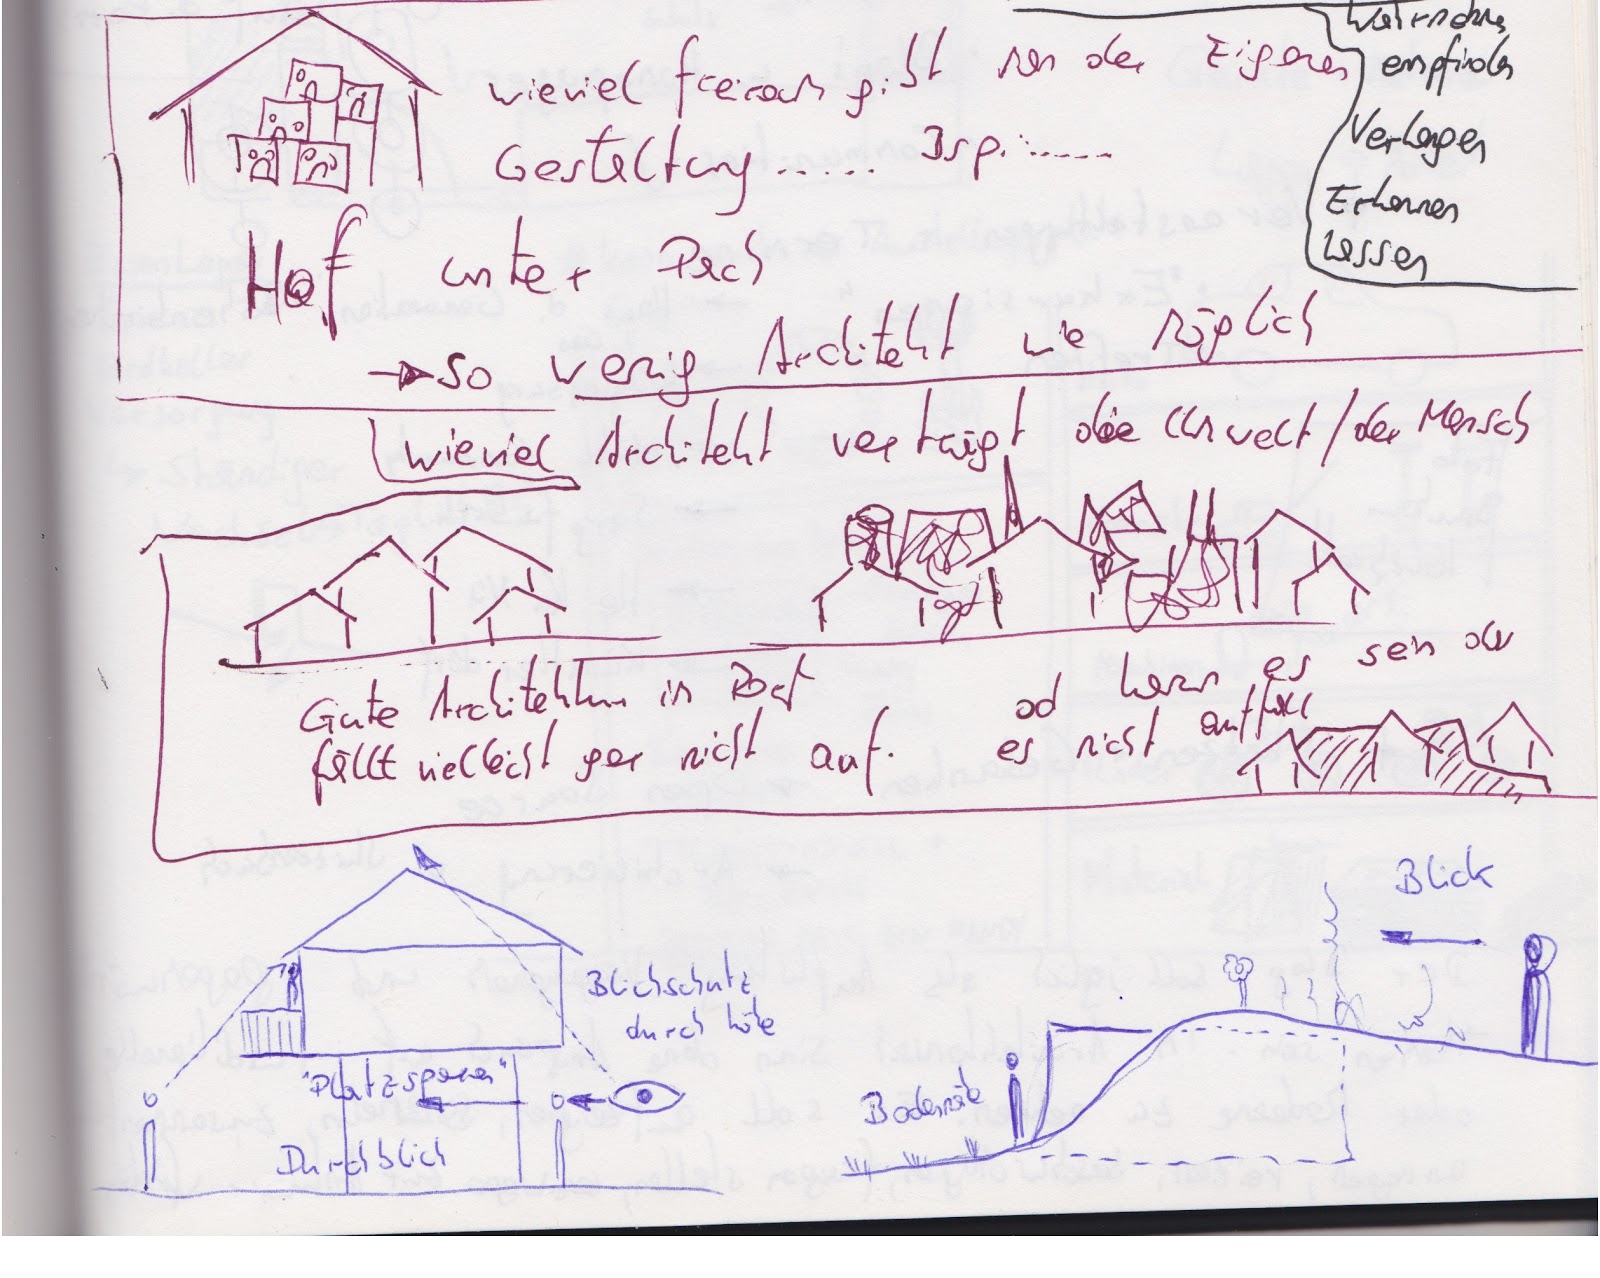 wieviel freiraum gibt man der Eigenen
Gestaltung...... Bsp.:......
Hof unter Dach
→ so wenig Architekt wie möglich
Wahrnehmen
empfinden
Verlangen
Erkennen
Lassen
wieviel Architekt verträgt die Umwelt/der Mensch
Gute Architektur in Dorf
fällt vielleicht gar nicht auf.
od kann es sein das
es nicht auffällt
Blickschutz
durch Höhe
"Platzsparen"
Durchblick
Blick
Bodennähe